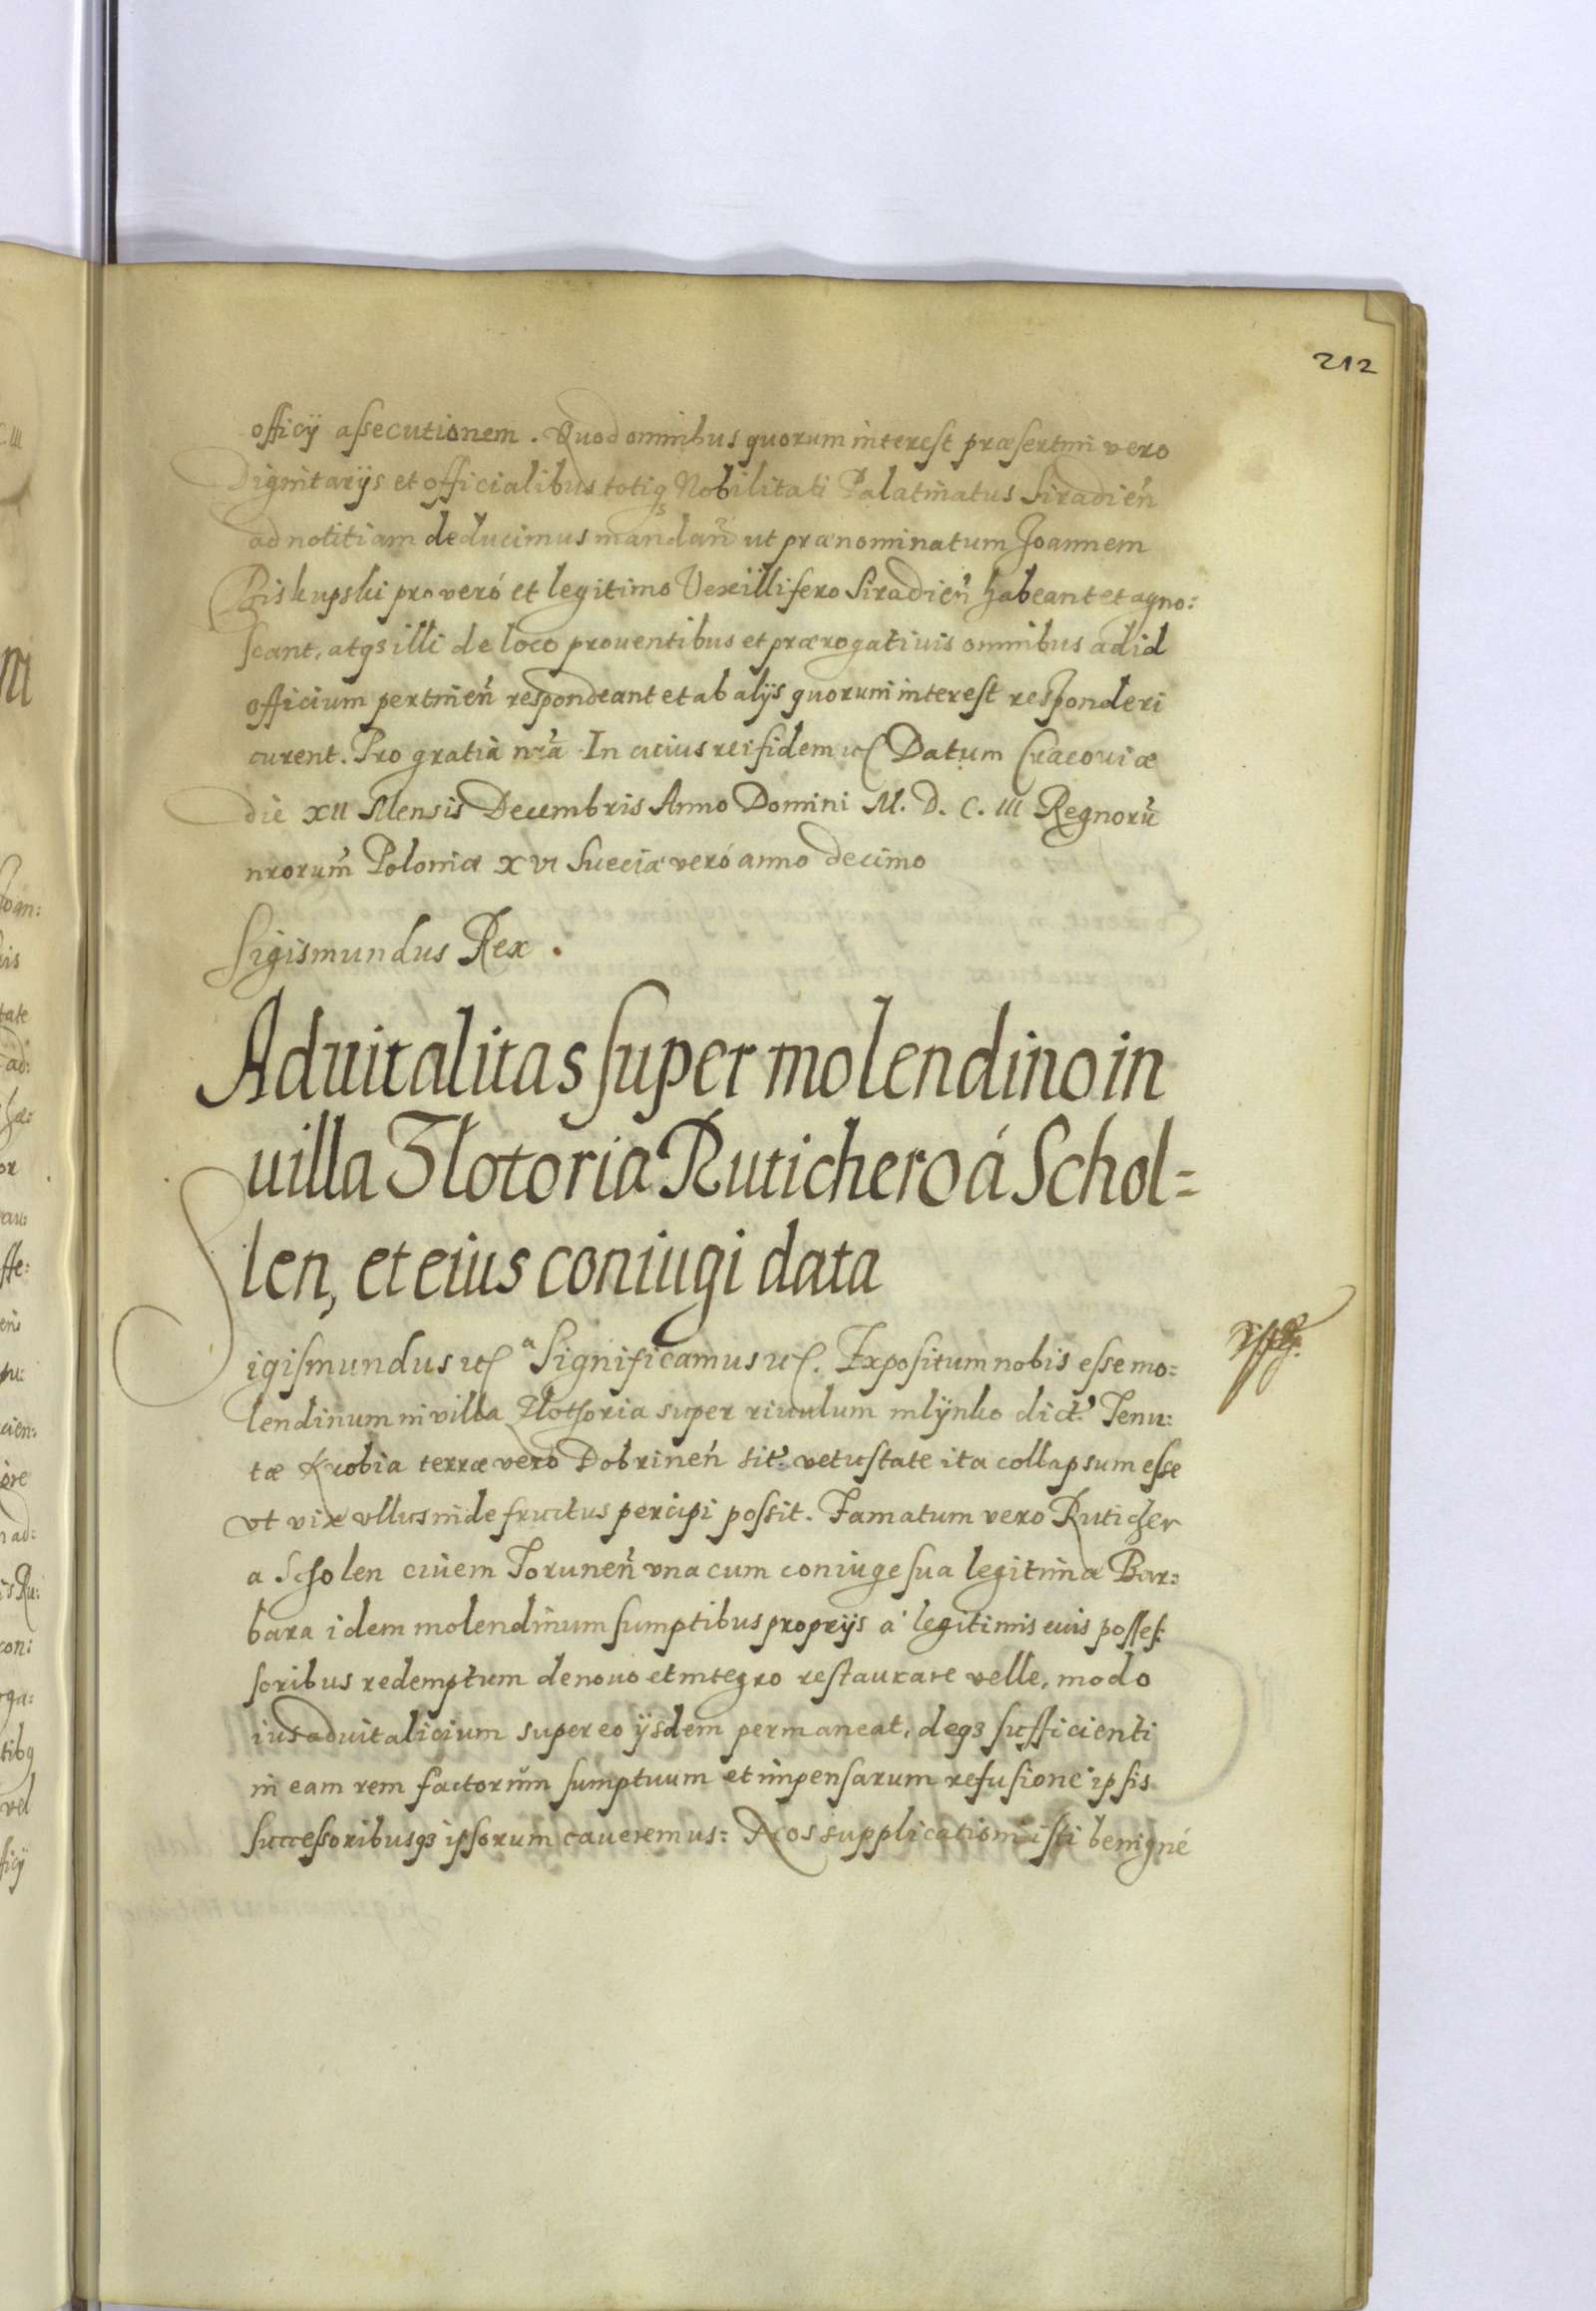 212
officÿ aſsecutionem. Quod omnibus quorum intereſt præsertim vero
Dignitarÿs et officialibus totiqȝ Nobilitati Palatinatus Siradień
ad notitiam deducimus mandań ut prænominatum Joannem
Biskupski pro veró et legitimo Vexillifero Siradień habeant et agno:
scant, atqȝ illi de loco prouentibus et prærogatiuis omnibus ad id
officium pertinenń respondeant et ab alÿs quorum intereſt responderi
curent. Pro gratia nrã In cuius rei fidem etc Datum Cracouiæ
die XII Mensis Decembris Anno Domini M. D. C. III Regnorũ
nrorum̃ Poloniæ XVI Sueciæ veró anno decimo
Sigismundus Rex.
Aduitalitas super molendino in
uilla Zlotoria Rutichero á Schol=
len, et eius coniugi data
Sigiſmundus etc Significamus etc. Expoſitum nobis eſse mo:
lendinum in villa Zlothoria super riuulum mlÿnko dict. Tenu:
tæ Krobia terræ vero Dobrineń sit. vetuſtate ita collapsum eſse
vt vix vllus inde fructus percipi poſsit. Famatum vero Ruticher
a Scholen ciuem Toruneń vna cum coniuge ſua legitima Bar:
bara idem molendinum ſumptibus proprÿs a legitimis euis poſſeſ:
ſoribus redemptum denouo et integro reſtaurare velle, modo
ius aduitalicium super eo ÿsdem permaneat, deqȝ ſufficienti
in eam rem factorum ſumptuum et impenſarum refuſione ipſis
ſucceſsoribusqȝ ipſorum caueremus: Nos supplicationi iſti benigné